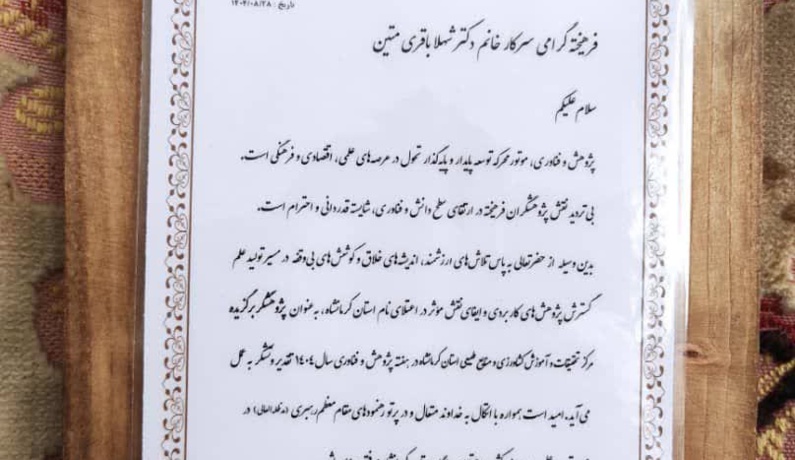 تاریخ : ۱۴۰۴/۰۸/۲۸
فرهیخته گرامی سرکار خانم دکتر شهلا باقری متین
سلام علیکم
پژوهش و فناوری، موتور محرکه توسعه پایدار و پایه گذار تحول در عرصه های علمی، اقتصادی و فرهنگی است.
بی تردید نقش پژوهشگران فرهیخته در ارتقای سطح دانش و فناوری، شایسته قدردانی و احترام است.
بدین وسیله از حضرتعالی به پاس تلاش های ارزشمند، اندیشه های خلاق و کوشش های بی وقفه در مسیر تولید علم
گسترش پژوهش های کاربردی و ایفای نقش مؤثر در اعتلای نام استان کرمانشاه، به عنوان پژوهشگر برگزیده
مرکز تحقیقات و آموزش کشاورزی و منابع طبیعی استان کرمانشاه در هفته پژوهش و فناوری سال ۱۴۰۴ تقدیر و تشکر به عمل
می آید. امید است همواره با اتکال به خداوند متعال و در پرتو رهنمودهای مقام معظم رهبری (مدظله العالی) در